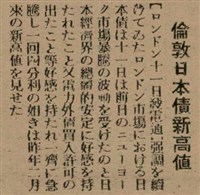 倫敦日本債新高値
【ロンドン十一日發電通】強調を續
けてゐたロンドン市場における日
本債は十一日は前日のニユーヨー
ク市場暴騰の波動を受けたのと日
本經濟界の的安定に好感を持
たれたこと又電力外債買入許可の
出たこと等好感を持れ一齊に急
騰し一回四分利の如きは昨年二月
來の新高値を見せた